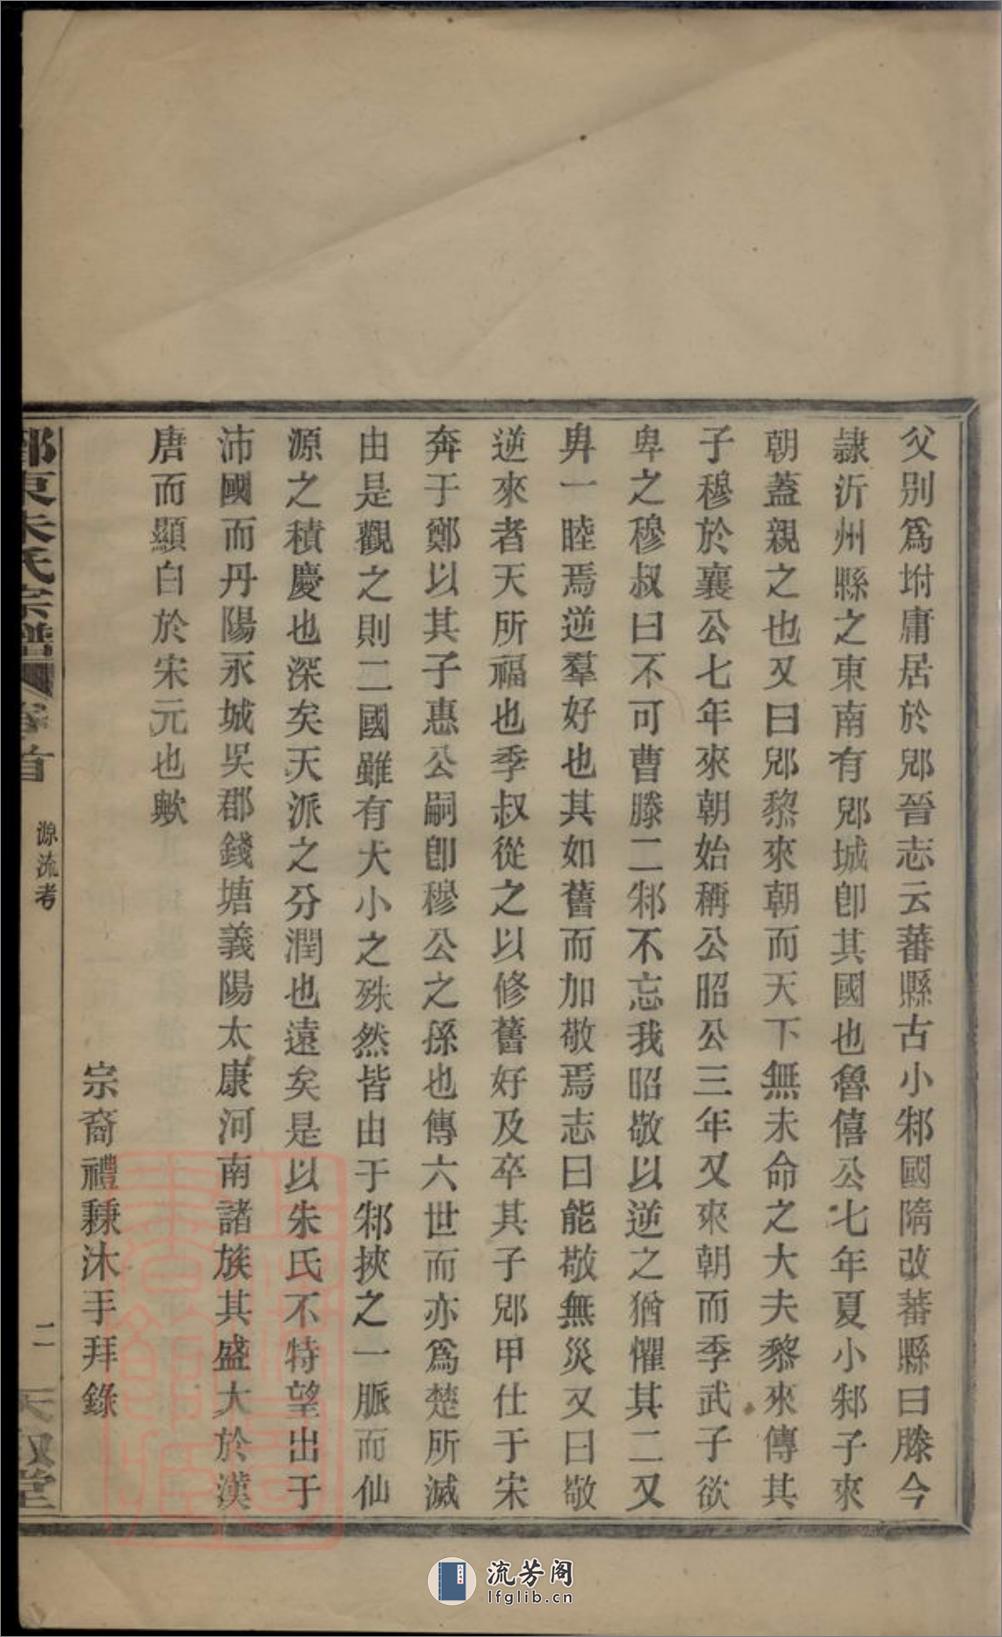 父别爲坿庸居於郳晉志云蕃縣古小邾國隋改蕃縣曰滕今
隷沂州縣之東南有郳城卽其國也魯僖公七年夏小邾子來
朝蓋親之也又曰郳黎來朝而天下無未命之大夫黎來傳其
子穆於襄公七年來朝始稱公昭公三年又來朝而季武子欲
卑之穆叔曰不可曹滕二邾不忘我昭敬以逆之猶懼其二又
𤰞一睦焉逆羣好也其如舊而加敬焉志曰能敬無災又曰敬
逆來者天所福也季叔從之以修舊好及卒其子郳甲仕于宋
奔于鄭以其子惠公嗣卽穆公之孫也傳六世而亦爲楚所滅
由是觀之則二國雖有大小之殊然皆由于邾挾之一脈而仙
源之積慶也深矣天派之分潤也遠矣是以朱氏不特望出于
沛國而丹陽永城吳郡錢塘義陽太康河南諸族其盛大於漢
唐而顯白於宋元也歟
宗裔禮𥠖沐手拜錄
東朱氏宗譜 卷首 源流考 二 天叙堂
流芳阁
lfglib.cn